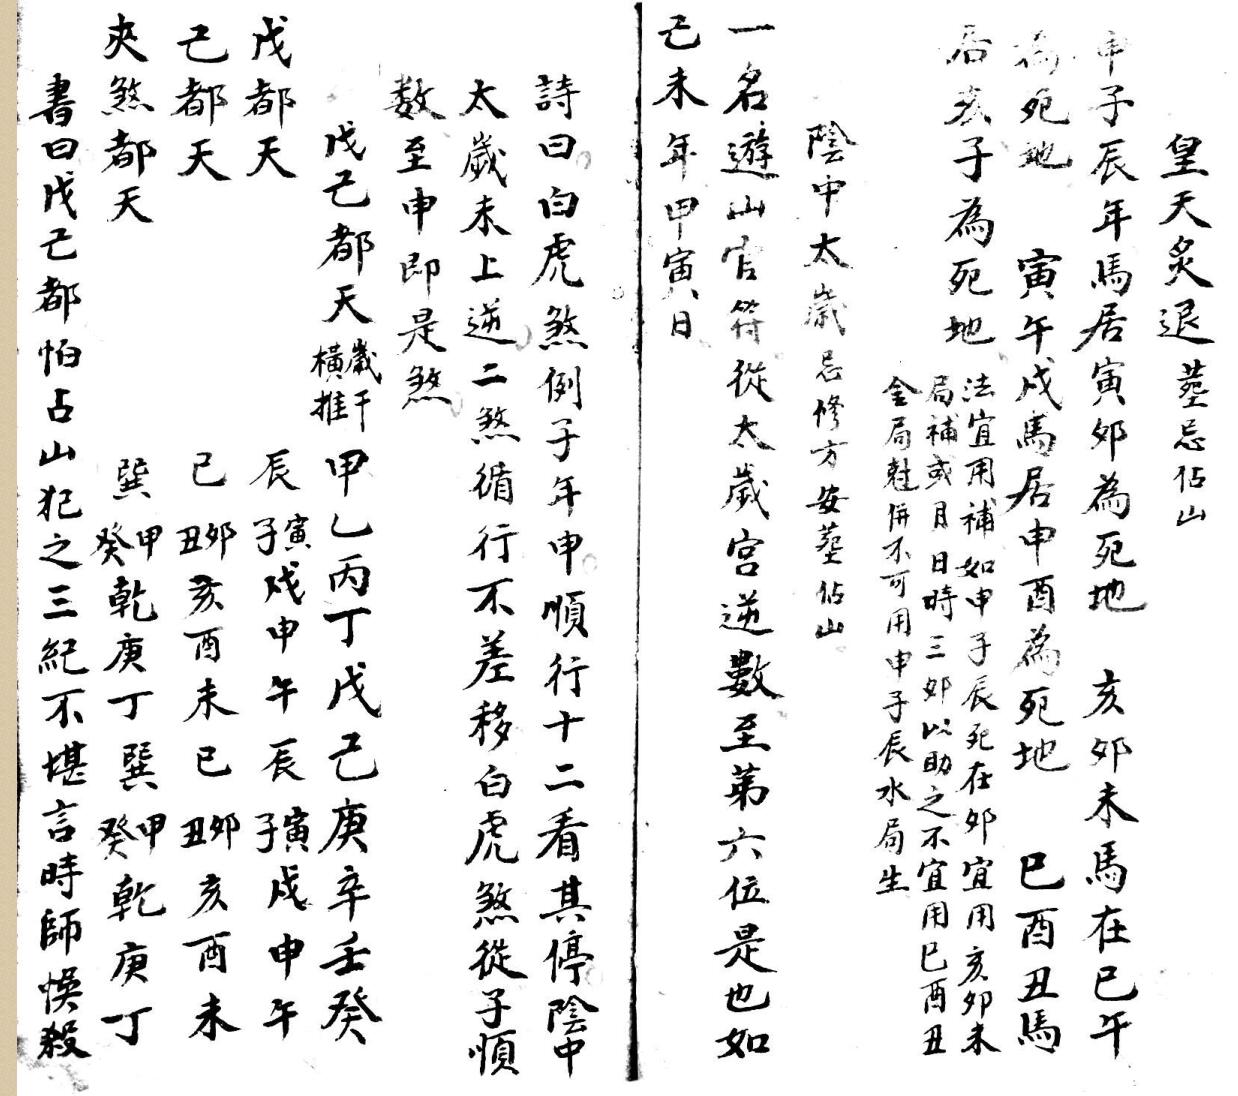 皇天炙退 塟忌佔山
申子辰年馬居寅夘為死地 亥夘未馬在巳午
為死地 寅午戌馬居申酉為死地 巳酉丑馬
居亥子為死地 法宜用補如申子辰死在夘宜用亥夘未
局補或月日時三夘以助之不宜用巳酉丑
金局尅併不可用申子辰水局生
陰中太歲 忌修方安塟佔山
一名遊山官符從太歲宮逆數至第六位是也如
己未年甲寅日
詩曰白虎煞例子年申順行十二看其停陰中
太歲未上逆二煞循行不差移白虎煞從子順
数至申即是煞
戊己都天 歲干橫推 甲乙丙丁戊己庚辛壬癸
戊都天 辰 寅子 戌申午辰 寅子 戌申午
己都天 巳 夘丑 亥酉未巳 夘丑 亥酉未
夾煞都天 巽 甲癸 乾庚丁巽 甲癸 乾庚丁
書曰戊己都怕占山犯之三紀不堪言時師悞殺